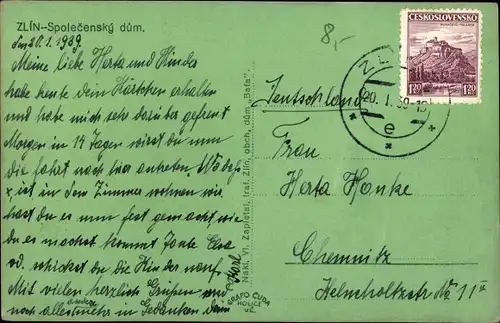 ZLÍN--Společenský dům.
Zlin 20.1.1939.
Meine liebe Herta und Kinder
habe heute dein Kärtchen erhalten
und habe mich sehr darüber gefreut
Morgen in 14 Tagen wirst du nun
die Fahrt nach hier antreten.
ist in den Zimmer wohnen wie
hast du es nun fest gemacht, wie
du es machst kommt Tante Elsa
od. schickst du die Kinder rauf.
Mit vielen herzlich Grüßen und
noch allerseits in Gedanken dein
Karl
Nakl. Vl. Zapletal, traf. Zlín, obch. dům „Baťa".
GRAFO ČUDA
HOLICE
8,-
ČESKOSLOVENSKO
1·20
1·20
ZLÍN
20. I. 39
e
Deutschland
Frau
Herta Honke
Chemnitz
Helmholtzstr. No 11